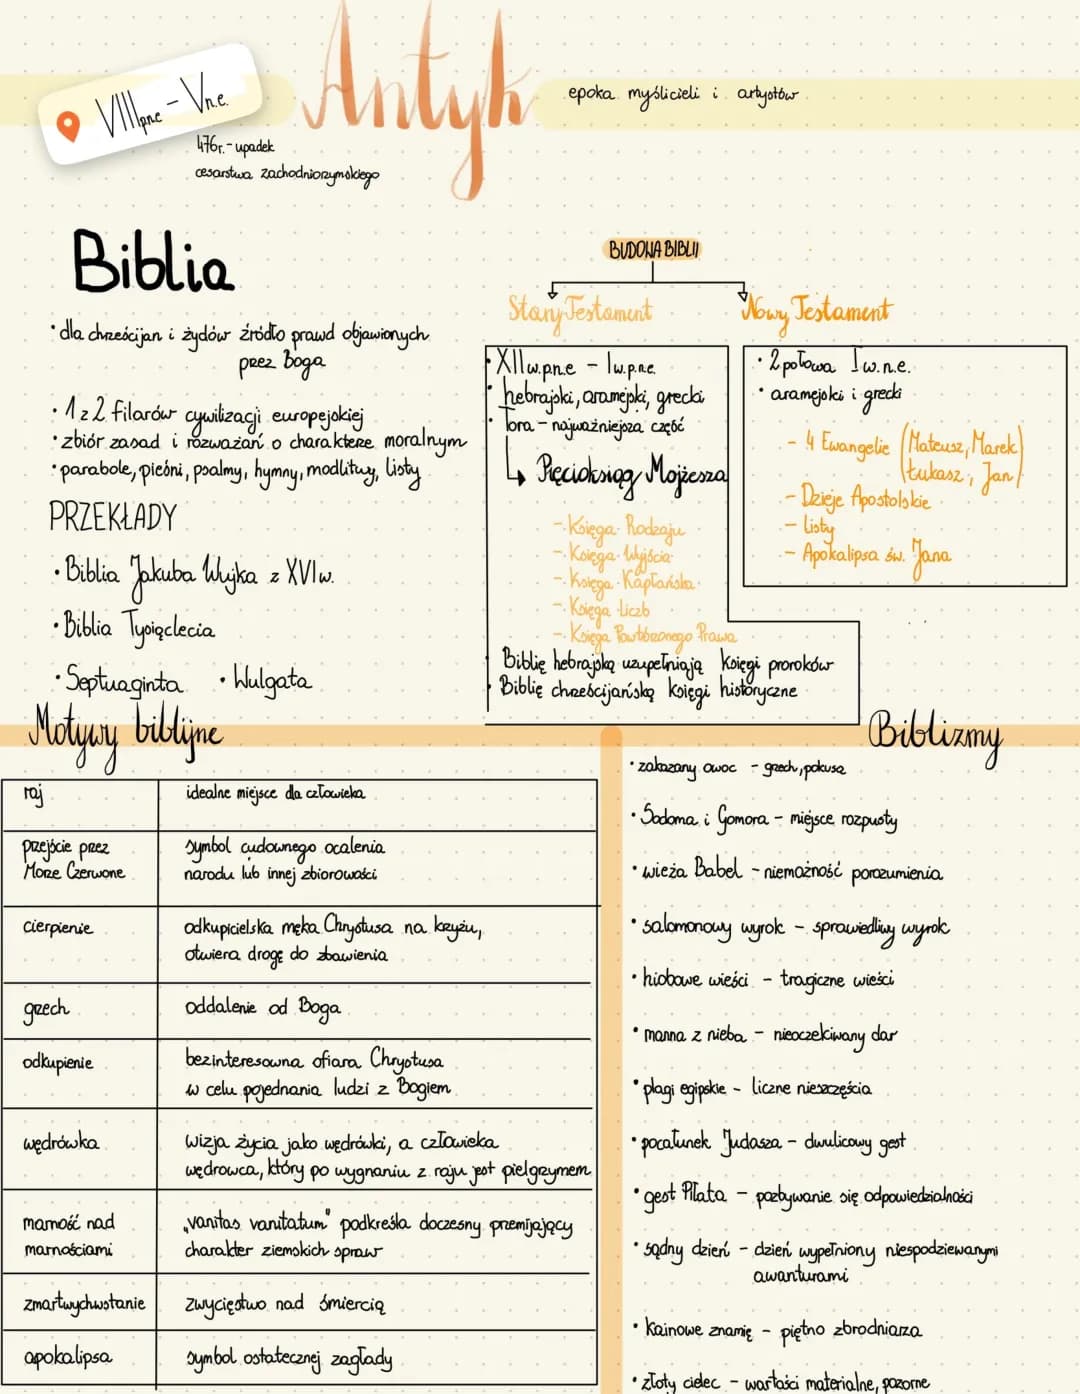 Antyk
VIIIpne - Vn.e.
epoka myślicieli i artystów
476r. - upadek
cesarstwa zachodniorzymskiego
Biblia
• dla chrześcijan i żydów źródło prawd objawionych
przez Boga
• 1 z 2 filarów cywilizacji europejskiej
• zbiór zasad i rozważań o charakterze moralnym
• parabole, pieśni, psalmy, hymny, modlitwy, listy
PRZEKŁADY
• Biblia Jakuba Wujka z XVI w.
• Biblia Tysiąclecia
• Septuaginta • Wulgata
BUDOWA BIBLII
Stary Testament
• XII w.p.n.e - I w.p.n.e.
• hebrajski, aramejski, grecki
• Tora - najważniejsza część
↳ Pięcioksiąg Mojżesza
- Księga Rodzaju
- Księga Wyjścia
- Księga Kapłańska
- Księga Liczb
- Księga Powtórzonego Prawa
• Biblię hebrajską uzupełniają Księgi proroków
• Biblię chrześcijańską księgi historyczne
Nowy Testament
• 2 połowa I w.n.e.
• aramejski i grecki
- 4 Ewangelie (Mateusz, Marek
Łukasz, Jan)
- Dzieje Apostolskie
- Listy
- Apokalipsa św. Jana
Motywy biblijne
raj
idealne miejsce dla człowieka
przejście przez
Morze Czerwone
symbol cudownego ocalenia
narodu lub innej zbiorowości
cierpienie
odkupicielska męka Chrystusa na krzyżu,
otwiera drogę do zbawienia
grzech
oddalenie od Boga
odkupienie
bezinteresowna ofiara Chrystusa
w celu pojednania ludzi z Bogiem
wędrówka
wizja życia jako wędrówki, a człowieka
wędrowca, który po wygnaniu z raju jest pielgrzymem
marność nad
marnościami
„vanitas vanitatum" podkreśla doczesny przemijający
charakter ziemskich spraw
zmartwychwstanie
zwycięstwo nad śmiercią
apokalipsa
symbol ostatecznej zagłady
Biblizmy
• zakazany owoc - grzech, pokusa
• Sodoma i Gomora - miejsce rozpusty
• wieża Babel - niemożność porozumienia
• salomonowy wyrok - sprawiedliwy wyrok
• hiobowe wieści - tragiczne wieści
• manna z nieba - nieoczekiwany dar
• plagi egipskie - liczne nieszczęścia
• pocałunek Judasza - dwulicowy gest
• gest Piłata - pozbywanie się odpowiedzialności
• sądny dzień - dzień wypełniony niespodziewanymi
awanturami
• kainowe znamię - piętno zbrodniarza
• złoty cielec - wartości materialne, pozorne